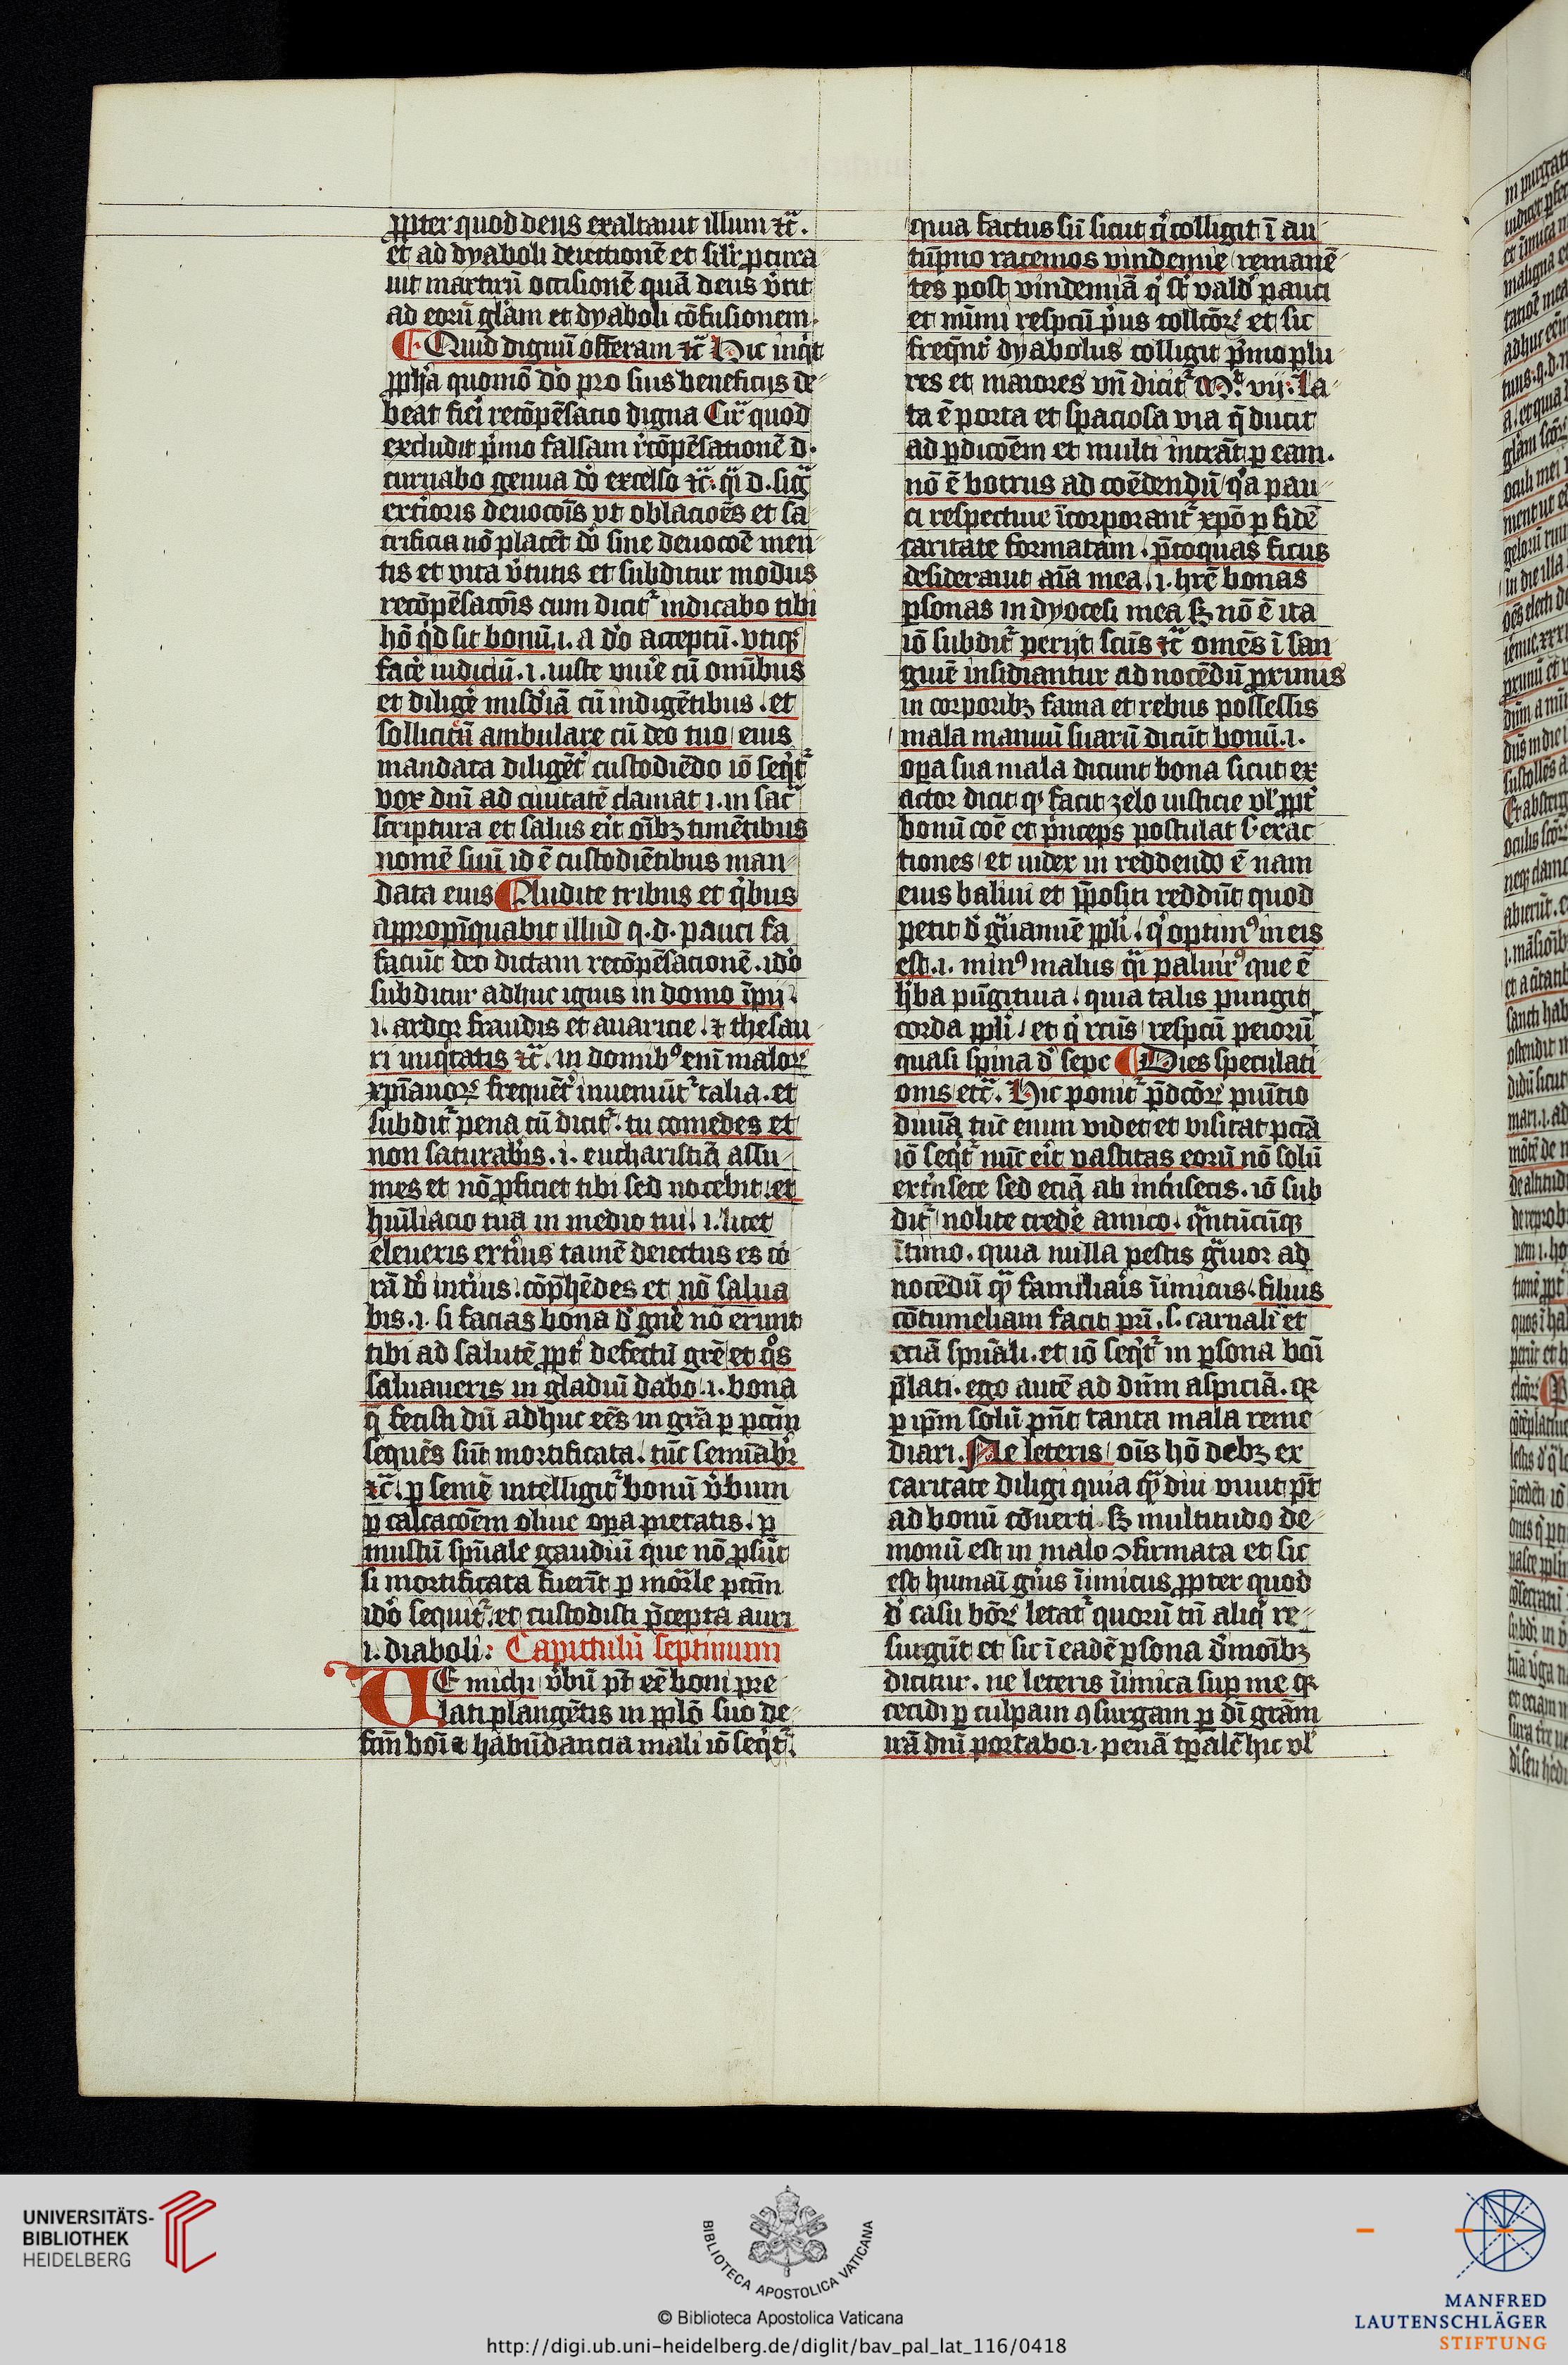 ꝓpter quod deus exaltauit illum ⁊c̃.
et ad dyaboli deiectionē et sil'r ꝓcura
uit martirū occisionē quā deus v'tit
ad eorū gl'am et dyaboli cōfusionem.
Quid dignū offeram ⁊c̃ Hic inq't
ꝓph'a quomō d'o pro suis beneficijs de
beat fieri recōpēsatio digna Cir' quod
excludit p'mo falsam r'cōpēsationē d.
curuabo genua d'o excelso ⁊c̃. q̃i d. sig̃
exterioris deuocōis vt oblacōes et sa
crificia nō placēt d'o sine deuocōe men
tis et vita v'tutis et subditur modus
recōpēsacōis cum dicit' indicabo tibi
hō q'd sit bonū .i. a d'o acceptū . vtiqꝫ
fac'e iudiciū .i. iuste viu'e cū omībus
et dilig'e mis'diā cū indigētibus . et
sollicitū ambulare cū deo tuo eius
mandata diligēt' custodiēdo iō seq't'
vox dn̄i ad ciuitatē clamat .i. in sac'
scriptura et salus erit oībꝫ timētibus
nomē suū id ē custodiētibus man
data eius Audite tribus et q'bus
appropīquabit illud q. d. pauci fa
faciūt deo dictam recōpēsationē . id'o
subditur adhuc ignis in domo īpij .
.i. ardor fraudis et auaricie . ⁊ thesau
ri iniq'tatis ⁊c̃ . in domibꝰ enī maloꝝ
xp̄ianoꝝ frequēt' inueniūt' talia . et
subdit' pena cū dicit' . tu comedes et
non saturab'is .i. eucharistiā assu
mes et nō ꝓficiet tibi sed nocebit . et
humiliacio tua in medio tui .i. licet
eleueris ext'ius tamē deiectus es co
rā d'o int'ius . cōp'hēdes et nō salua
bis .i. si facias bona d' gn'e nō erunt
tibi ad salutē ꝓpt' defectū gr̄e et q'os
saluaueris in gladiū dabo .i. bona
q̄ fecisti dū adhuc ēes in grā ꝑ pctm̄
sequēs sūt mortificata . tūc semīab'
⁊c̃ . ꝑ semē intelligit' bonū v'bum
ꝑ calcacōem oliue oꝑa pietatis . ꝑ
mustū spūale gaudiū que nō ꝓsūt
si mortificata fuerīt ꝑ mor'le pctm̄
id'o sequit' . et custodisti p̄cepta amri
.i. diaboli : Capitulū septimum
Ue michi v'bū pt̄ eē boni pre
lati plangētis in pp̄lo suo de
fc̄m boni ⁊ habūdancia mali iō seq't'
quia factus sū sicut q' colligit ī au
tūpno racemos vindemie remanē
tes post vindemiā q' st' vald' pauci
et mīmi respc̄ū p'us collc̄oꝝ et sic
freq̄nt' dyabolus colligit p'mo plu
res et maiores vn̄ dicit' Mᵗ. vij : la
ta ē porta et spaciosa via q̄ ducit
ad ꝑdicōem et multi intrāt ꝑ eam .
nō ē botrus ad coēdendū q'a pau
ci respectiue īcorporant' xp̄o ꝑ fidē
caritate formatam . p̄coquas ficus
desiderauit aīa mea .i. hr̄e bonas
ꝑsonas in dyocesi mea sꝫ nō ē ita
iō subdit' perijt scūs ⁊c̃ omēs ī san
guīe insidiantur ad nocēdū ꝓximis
in corporibꝫ fama et rebus possessis
mala manuū suarū dicūt bonū .i.
oꝑa sua mala dicunt bona sicut ex
actor dicit qꝫ facit zelo iusticie vl' ꝓpt'
bonū coē et p'nceps postulat s. exac
tiones et iudex in reddendo ē nam
eius baliui et p̄positi reddūt quod
petit d' g̃uamīe pp̄li . q' optimꝰ in eis
est .i. minꝰ malus q̃i paliurꝰ que ē
h'ba pūgitiua . quia talis pungit
corda pp̄li . et q' rc̄us respc̄ū peiorū
quasi spina d' sepe Dies speculati
onis etc̃. Hic ponit' p̄dc̄oꝝ punitio
diuīa tūc enim videt et visitat pc̄tā
iō seq't' nūc erit vastitas eorū nō solū
ext'insece sed eciā ab int'insecis . iō sub
dit' nolite cred'e amico . q̃ntūcūqꝫ
ītimo . quia nulla pestis g̃uior ad
nocēdū q̃ familiaris īimicus . filius
cōtumeliam facit pr̄i .s. carnali et
eciā spūali . et iō seq't' in ꝑsona boni
p̄lati . ego autē ad dn̄m aspiciā . qꝛ
ꝑ ip̄m solū pn̄t tanta mala reme
diari . Ne leteris oīs hō debꝫ ex
caritate diligi quia q̃ diu viuit pt̄
ad bonū cōuerti . sꝫ multitudo de
monū est in malo ꝯfirmata et sic
est humani gn̄is īimicus ꝓpter quod
d' casu boꝝ letat' quorū tn̄ aliq' re
surgūt et sic ī eadē ꝑsona d'monibꝫ
dicitur . ne leteris īimica suꝑ me qꝛ
cecidi ꝑ culpam ꝯsurgam ꝑ dī grām
irā dn̄i portabo .i. penā tꝑalē hic vl'
UNIVERSITÄTS-
BIBLIOTHEK
HEIDELBERG
BIBLIOTECA APOSTOLICA VATICANA
© Biblioteca Apostolica Vaticana
http://digi.ub.uni-heidelberg.de/diglit/bav_pal_lat_116/0418
MANFRED
LAUTENSCHLÄGER
STIFTUNG